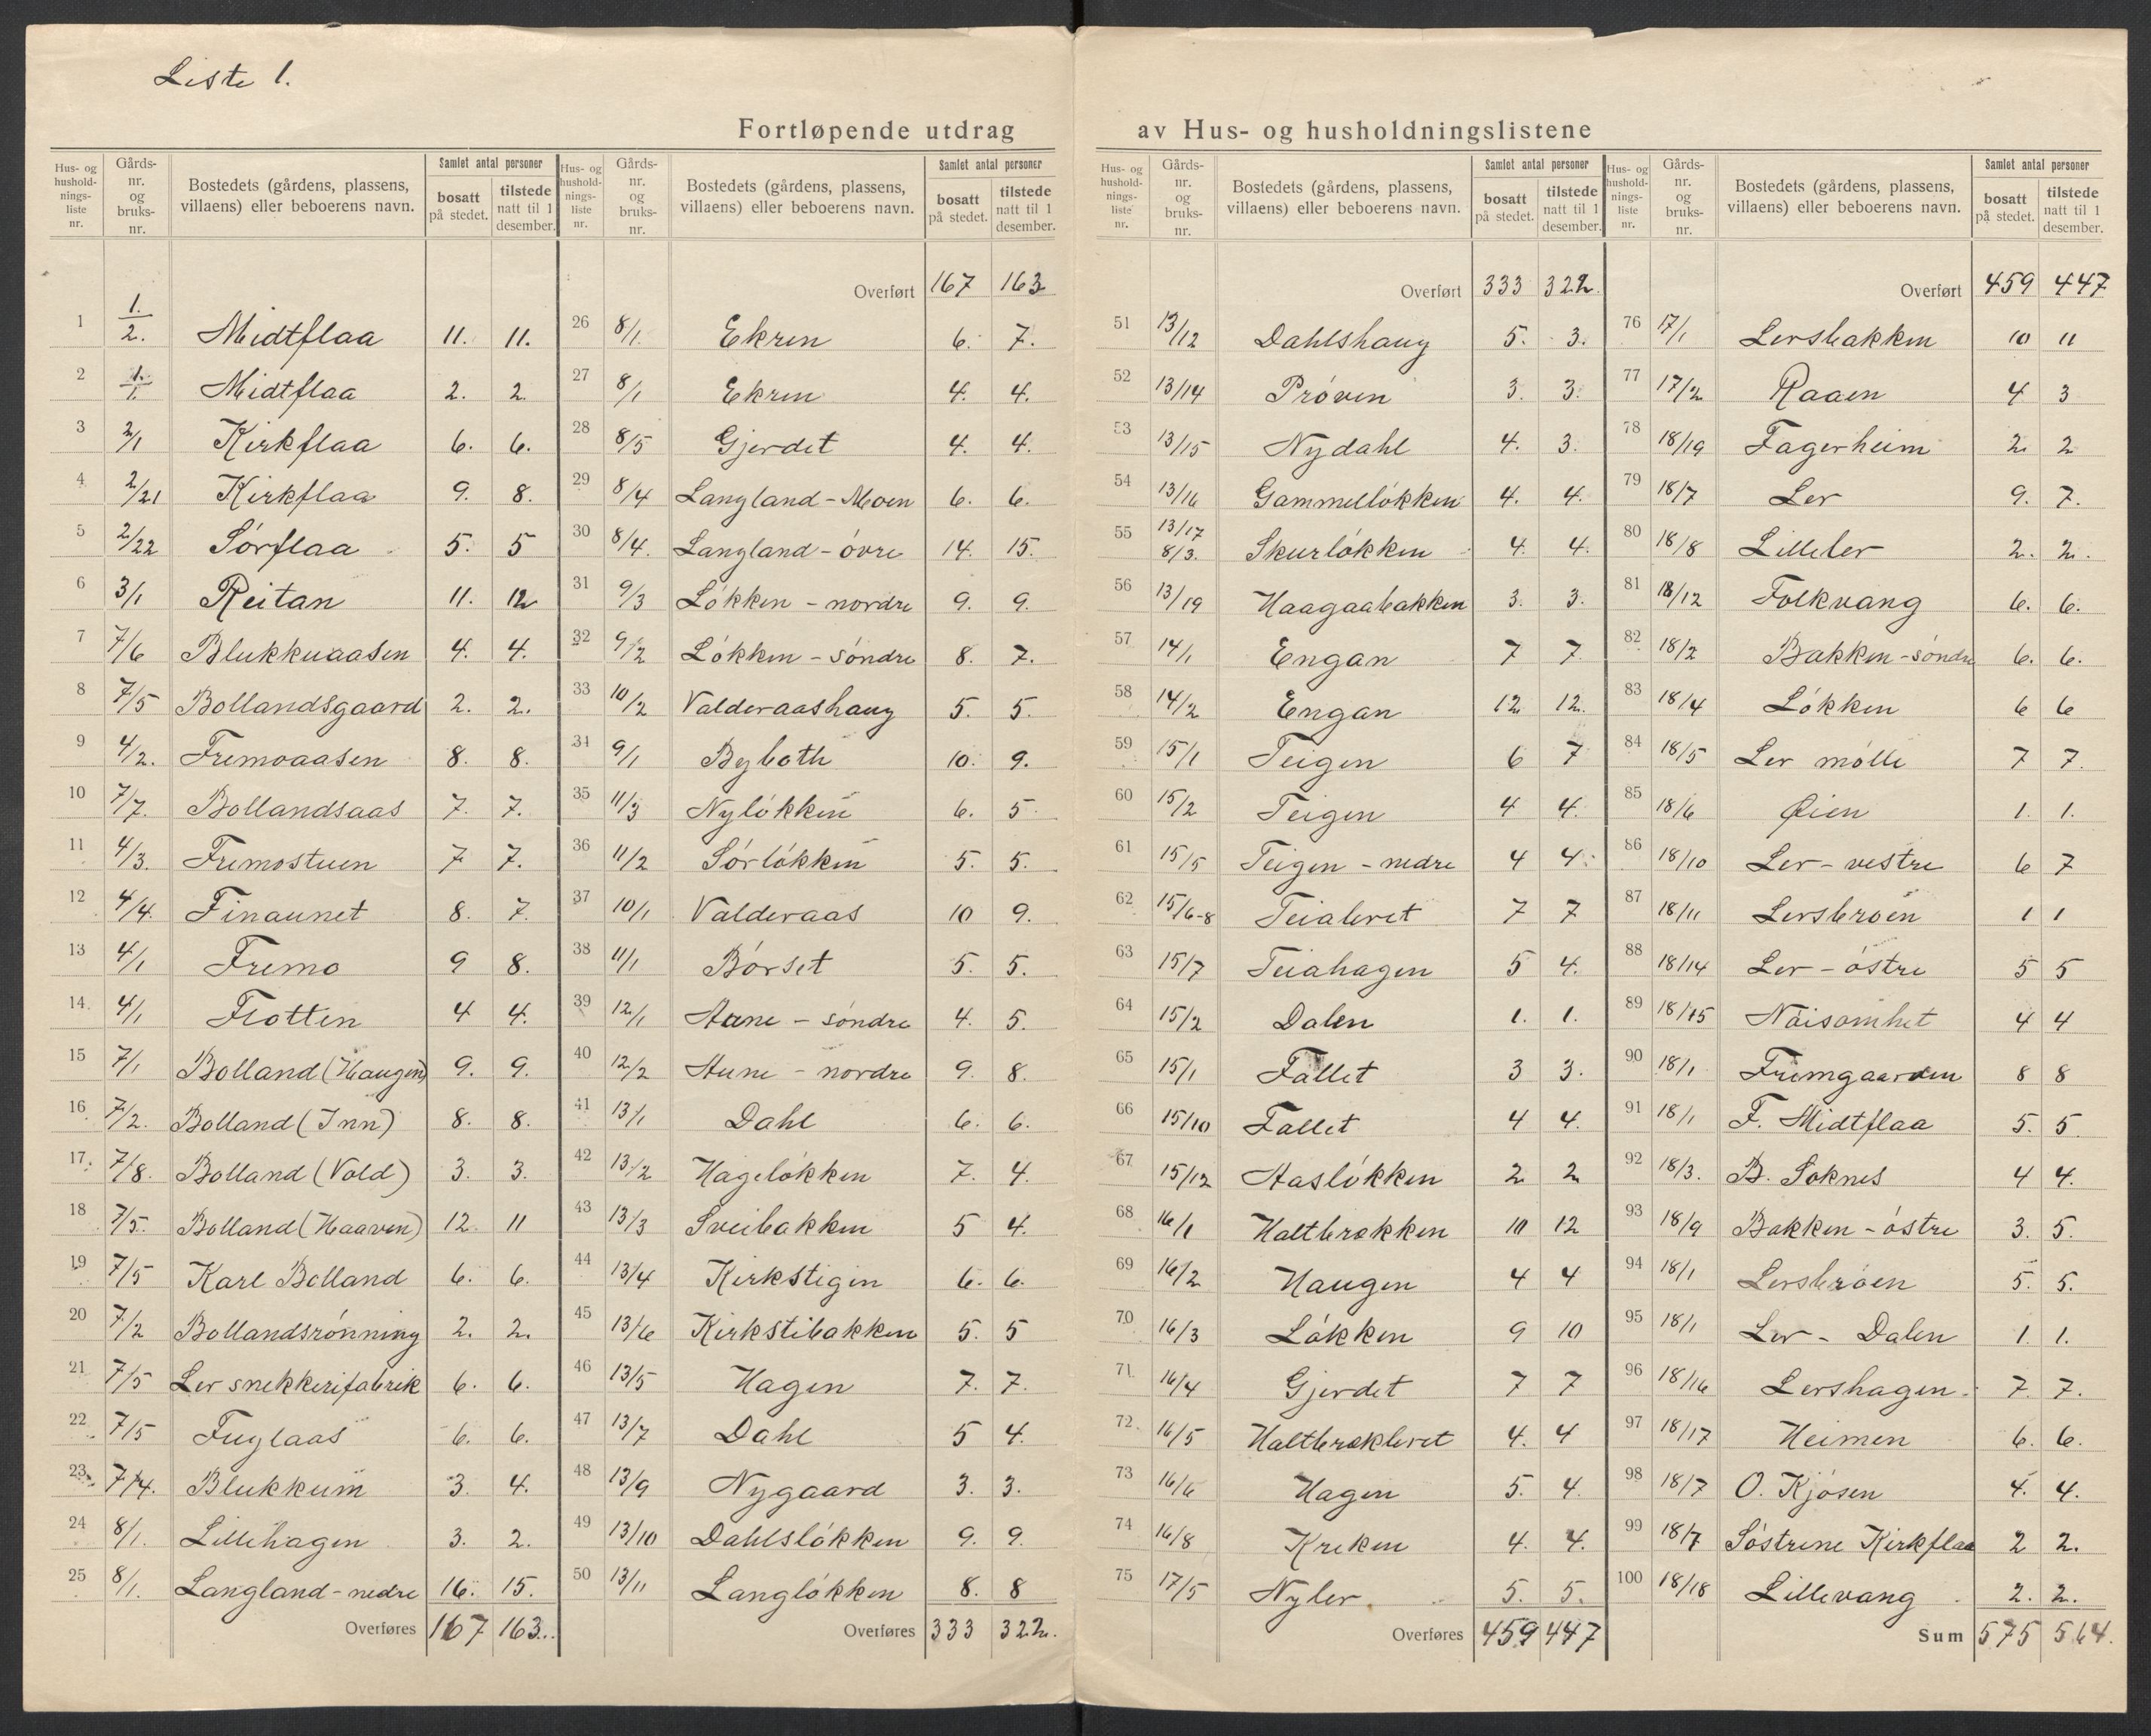 Liste 1.
Fortløpende utdrag av Hus- og husholdningslistene
Hus- og husholdningsliste nr. | Gårds-nr. og bruks-nr. | Bostedets (gårdens, plassens, villaens) eller beboerens navn. | Samlet antal personer | bosatt på stedet. | tilstede natt til 1 desember.
1 1./2. Midtflaa 11. 11.
2 1./1. Midtflaa 2. 2.
3 2/1 Kirkflaa 6. 6.
4 2/21 Kirkflaa 9. 8.
5 2/22 Sórflaa 5. 5
6 3/1 Reitan 11. 12
7 7/6 Blukkuaasen 4. 4.
8 7/5 Bollandsgaard 2. 2.
9 4/2. Fremoaasen 8. 8.
10 7/7. Bollandsaas 7. 7.
11 4/3. Fremostuen 7 7.
12 4/4. Finaunet 8. 7.
13 4/1 Fremo 9 8.
14 4/1 Flotten 4 4.
15 7/1 Bolland (Haugen) 9. 9.
16 7/2. Bolland (Inn) 8. 8.
17 7/8. Bolland (Vold) 3. 3.
18 7/5. Bolland (Haaven) 12. 11
19 7/5 Karl Bolland 6. 6.
20 7/2 Bollandsrónning 2. 2.
21 7/5 Ler snekkerifabrik 6. 6.
22 7/5 Fuglaas 6. 6.
23 7/4. Blukkum 3. 4.
24 8/1. Lillehagen 3. 2.
25 8/1. Langland - nedre 16. 15.
Overføres 167 163.
Hus- og husholdningsliste nr. | Gårds-nr. og bruks-nr. | Bostedets (gårdens, plassens, villaens) eller beboerens navn. | Samlet antal personer | bosatt på stedet. | tilstede natt til 1 desember.
Overført 167 163
26 8/1. Ekren 6. 7.
27 8/1 Ekren 4. 4.
28 8/5 Gjerdet 4. 4.
29 8/4 Langland - Moen 6. 6.
30 8/4. Langland - óvre 14. 15.
31 9/3 Lókken - nordre 9. 9.
32 9/2 Lókken - sóndre 8. 7.
33 10/2 Valderaashaug 5. 5.
34 9/1 Byboth 10. 9.
35 11/3 Nylókken 6. 5
36 11/2 Sórlókken 5. 5.
37 10/1 Valderaas 10 9.
38 11/1 Bórset 5. 5.
39 12/1 Aune - sóndre 4. 5.
40 12/2 Aune - nordre 9. 8.
41 13/1 Dahl 6. 6.
42 13/2 Hagelókken 7. 4.
43 13/3 Sveibakken 5 4.
44 13/4 Kirkstigen 6. 6.
45 13/6 Kirkstibakken 5. 5
46 13/5 Hagen 7. 7.
47 13/7 Dahl 5 4.
48 13/9 Nygaard 3. 3.
49 13/10 Dahlslókken 9. 9.
50 13/11 Langlókken 8. 8
Overføres 333 322.
Hus- og husholdningsliste nr. | Gårds-nr. og bruks-nr. | Bostedets (gårdens, plassens, villaens) eller beboerens navn. | Samlet antal personer | bosatt på stedet. | tilstede natt til 1 desember.
Overført 333 322.
51 13/12 Dahlshaug 5. 3.
52 13/14 Próven 3. 3.
53 13/15 Nydahl 4. 3.
54 13/16 Gammellókken 4. 4.
55 13/17 8/3. Skurlókken 4. 4.
56 13/19 Haagaabakken 3. 3.
57 14/1 Engan 7 7
58 14/2 Engan 12 12.
59 15/1 Teigen 6 7
60 15/2 Teigen 4 4.
61 15/5 Teigen - nedre 4 4.
62 15/6-8 Teialeret 7 7
63 15/7 Teiahagen 5 4.
64 15/2 Dalen 1. 1.
65 15/1 Fallet 3 3.
66 15/10 Fallet 4 4.
67 15/12 Aaslókken 2 2
68 16/1 Haltbrækken 10 12
69 16/2 Haugen 4 4
70 16/3 Lókken 9 10
71 16/4 Gjerdet 7 7
72 16/5 Haltbrækleret 4. 4
73 16/6 Hagen 5. 4.
74 16/8 Kreken 4. 4.
75 17/5 Nyler 5. 5.
Overføres 459 447
Hus- og husholdningsliste nr. | Gårds-nr. og bruks-nr. | Bostedets (gårdens, plassens, villaens) eller beboerens navn. | Samlet antal personer | bosatt på stedet. | tilstede natt til 1 desember.
Overført 459 447
76 17/1 Lersbakken 10 11
77 17/2 Raaen 4 3
78 18/19 Fagerheim 2. 2
79 18/7 Ler 9. 7.
80 18/8 Lilleler 2. 2.
81 18/12 Folkvang 6. 6.
82 18/2 Bakken - sóndre 6. 6.
83 18/4 Lókken 6 6
84 18/5 Ler mólle 7 7.
85 18/6 Øien 1. 1.
86 18/10 Ler - vestre 6 7
87 18/11 Lersbróen 1 1
88 18/14 Ler - óstre 5 5
89 18/15 Nóisomhet 4 4
90 18/1 Fremgaarden 8 8
91 18/1 F. Midtflaa 5. 5.
92 18/3. B. Soknes 4 4.
93 18/9 Bakken - óstre 3. 5.
94 18/1 Lersbróen 5. 5.
95 18/1 Ler - Dalen 1. 1.
96 18/16 Lershagen 7. 7.
97 18/17 Heimen 6. 6.
98 18/7 O. Kjósen 4. 4.
99 18/7 Sóstrene Kirkflaa 2 2.
100 18/18 Lillevang 2. 2.
Sum 575 564.